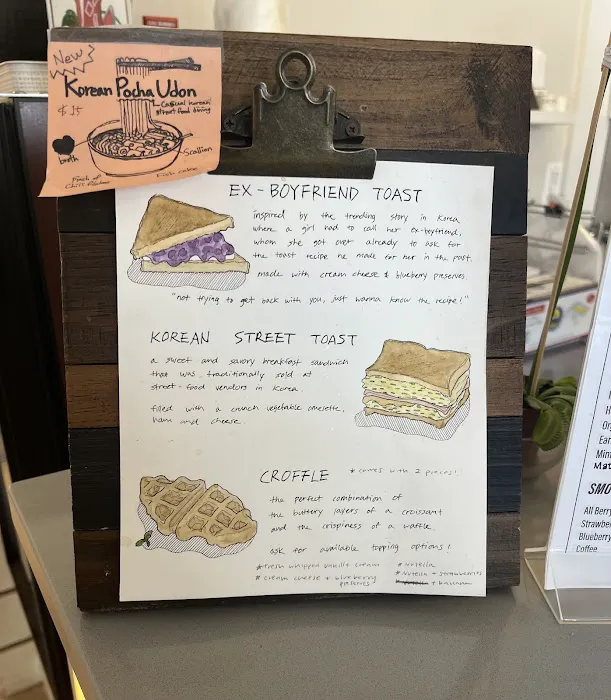 New
Korean Pocha Udon
$15
Casual korean
street food dining
broth
Scallion
Pinch of
Chili flakes
Fish cake
EX-BOYFRIEND TOAST
inspired by the trending story in Korea
where a girl had to call her ex-boyfriend,
whom she got over already to ask for
the toast recipe he made for her in the past.
made with cream cheese & blueberry preserves.
"not trying to get back with you, just wanna know the recipe!"
KOREAN STREET TOAST
a sweet and savory breakfast sandwich
that was traditionally sold at
street-food vendors in Korea
filled with a crunch vegetable omelette,
ham and cheese.
CROFFLE
*comes with 2 pieces!
the perfect combination of
the buttery layers of a croissant
and the crispiness of a waffle.
ask for available topping options!
*fresh whipped vanilla cream
*cream cheese + blueberry
preserves
*Nutella
*Nutella + strawberries
+ banana
Org
Ear
Min
Mat
SMO
All Berry
Strawbe
Blueberry
Coffee